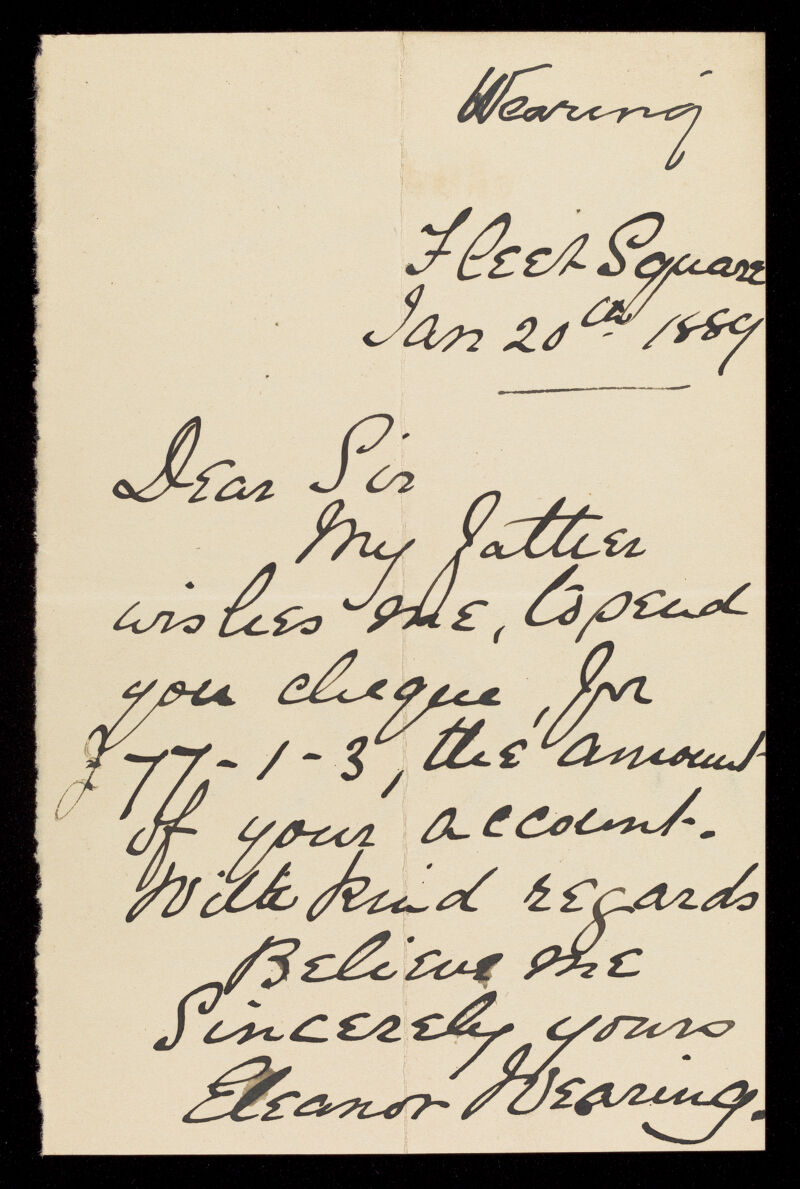 Wearing
Fleet Square
Jan 20th. 1889
Dear Sir
My Father
wishes me, to send
you cheque, for
£77-1-3, the amount
of your account.
With kind regards
Believe me
Sincerely yours
Eleanor Wearing.